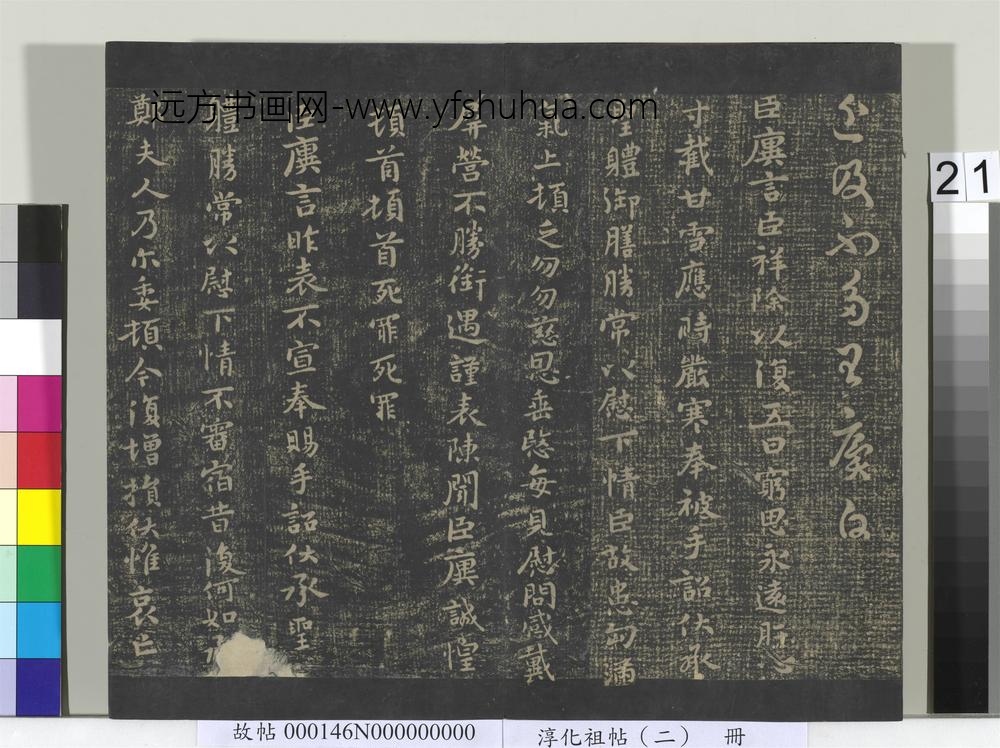 近及不多王廙白
臣廙言臣祥除以復五日窮思永遠肝心
寸截甘雪應時嚴寒奉被手詔伏承
聖體御膳勝常以慰下情臣故患匈滿
氣上頓乏勿勿慈恩垂愍每見慰問感戴
屏營不勝銜遇謹表陳聞臣廙誠惶
頓首頓首死罪死罪
臣廙言昨表不宣奉賜手詔伏承聖
體勝常以慰下情不審宿昔復何如
鄭夫人乃尔委頓令復增損伏惟哀亡
远方书画网-www.yfshuhua.com
21
故帖 000146N000000000
淳化祖帖（二） 冊